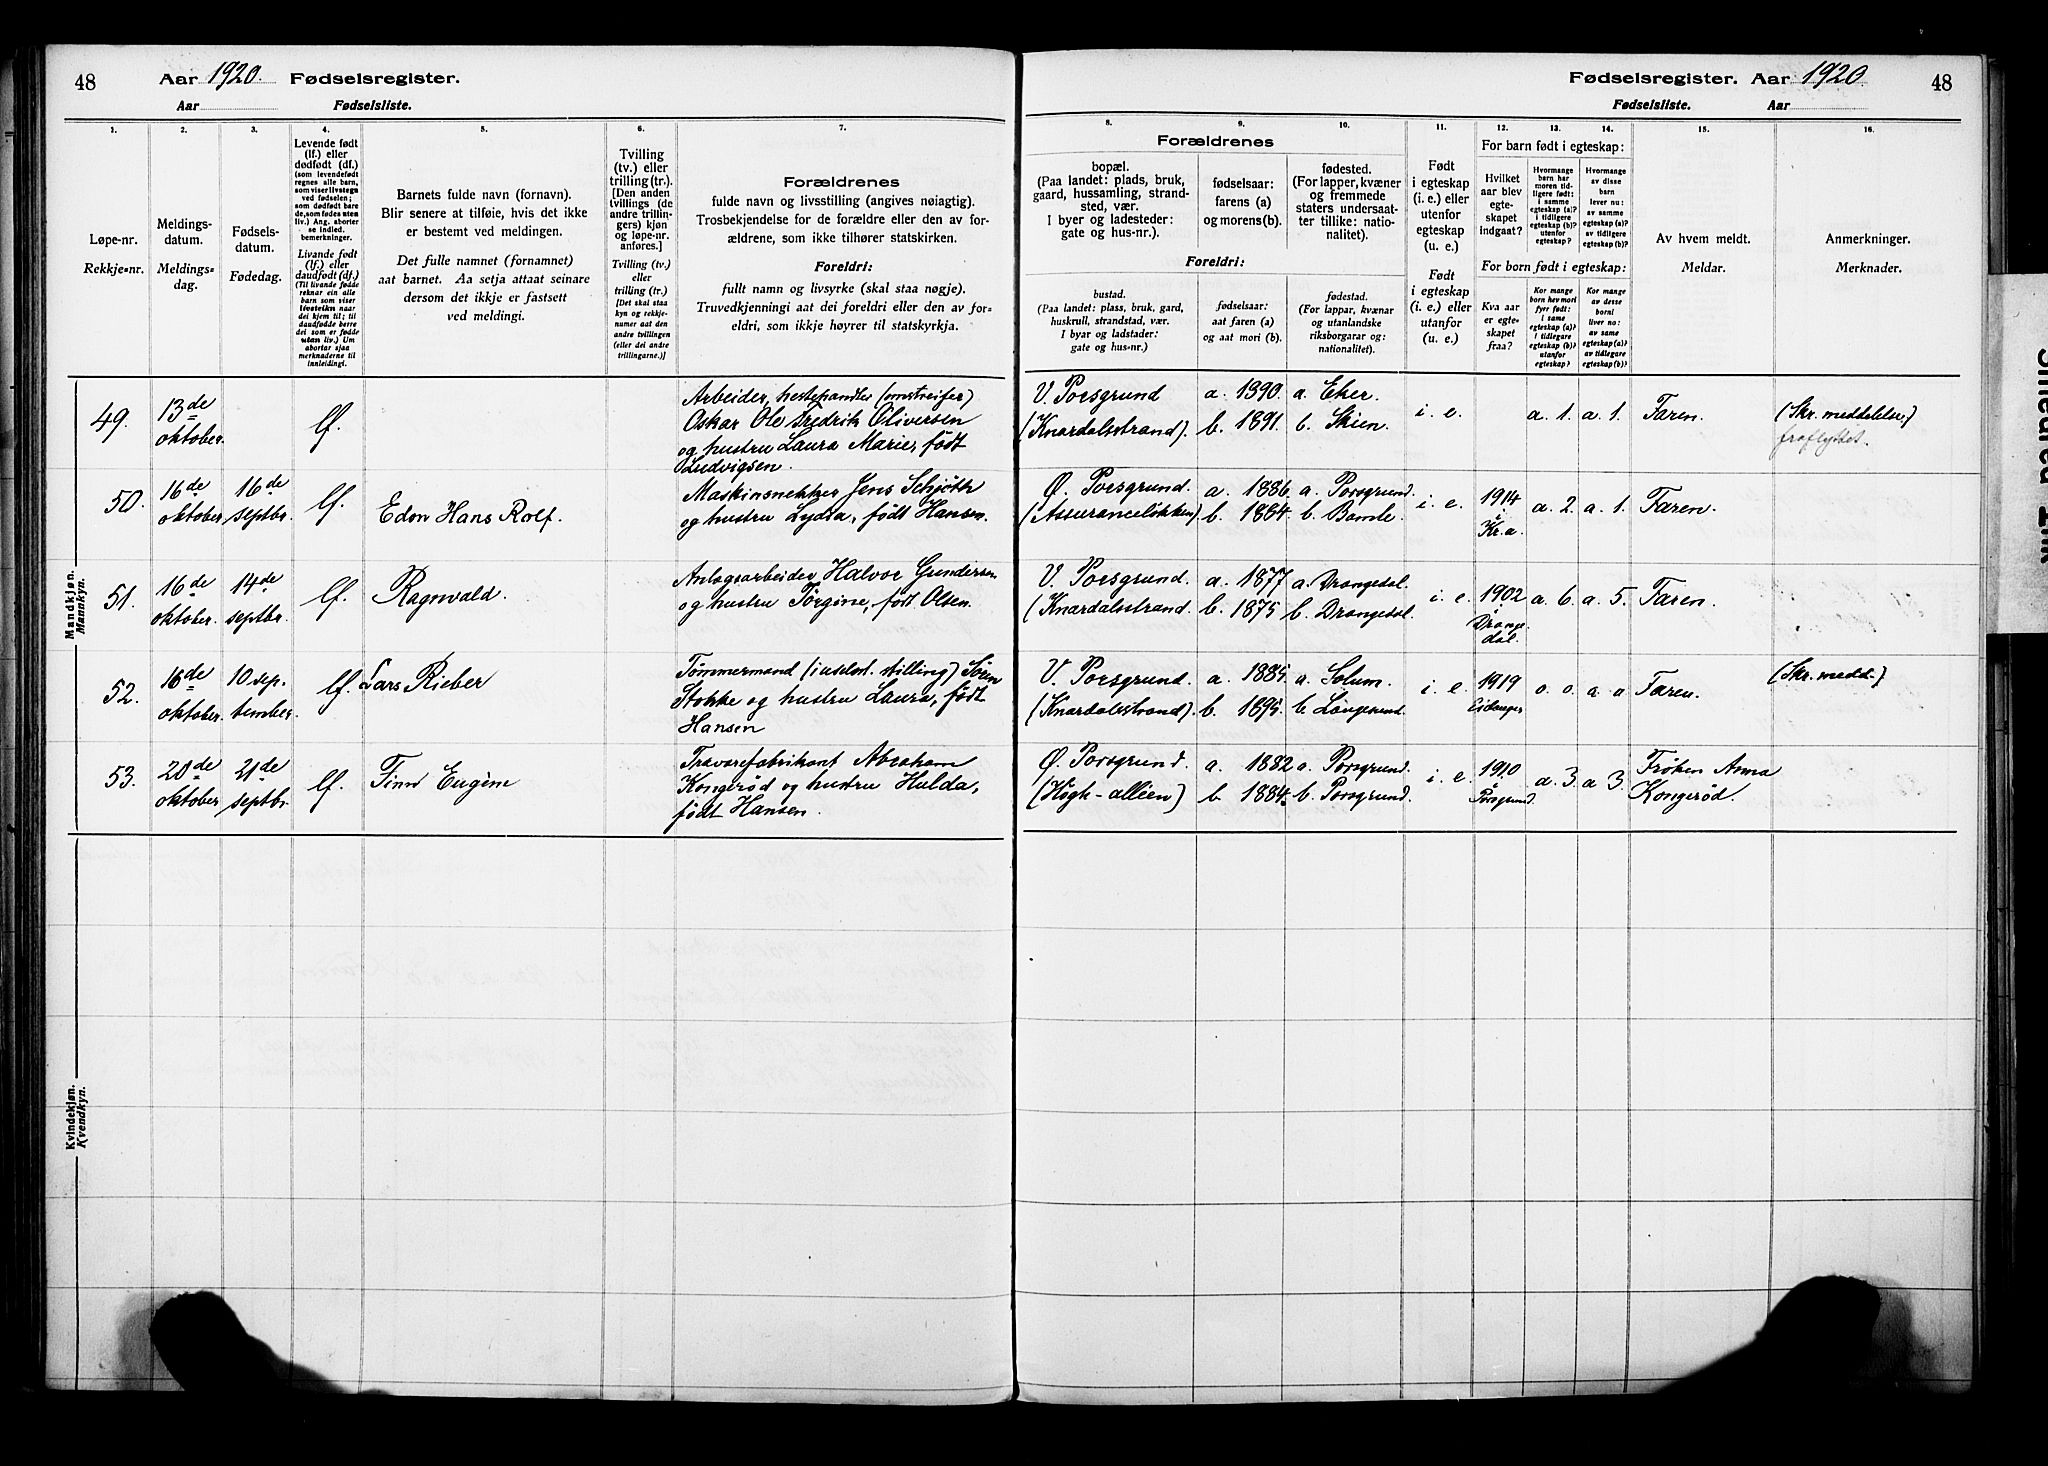 48
Aar 1920. Fødselsregister.
Aar Fødselsliste.
1.
2.
3.
4.
5.
6.
7.
Løpe-nr.
Rekkje=nr.
Meldings-
datum.
Meldings=
dag.
Fødsels-
datum.
Fødedag.
Levende født
(lf.) eller
dødfødt (df.)
(som levendefødt
regnes alle barn,
som viser livstegn
ved fødselen;
som dødfødt bare
de, som fødes uten
liv.) Ang. aborter
se indled.
bemerkninger.
Livande født
(lf.) eller
daudfødt (df.)
(Til livande fødde
reknar ein alle
barn som viser
livsteikn naar
dei kjem til; til
daudfødde berre
dei som er fødde
utan liv.) Um
abortar sjaa
merknaderne til
innleidingi.
Barnets fulde navn (fornavn).
Blir senere at tilføie, hvis det ikke
er bestemt ved meldingen.
Det fulle namnet (fornamnet)
aat barnet. Aa setja attaat seinare
dersom det ikkje er fastsett
ved meldingi.
Tvilling
(tv.) eller
trilling (tr.).
[Den anden
tvillings (de
andre trillin-
gers) kjøn
og løpe-nr.
anføres.]
Tvilling (tv.)
eller
trilling (tr.)
[Det skal staa
kyn og rekkje-
numer aat den
andre tvillingen
(eller dei andre
trillingarne.)]
Forældrenes
fulde navn og livsstilling (angives nøiagtig).
Trosbekjendelse for de forældre eller den av for-
ældrene, som ikke tilhører statskirken.
Foreldri:
fullt namn og livsyrke (skal staa nøgje).
Truvedkjenningi aat dei foreldri eller den av for-
eldri, som ikkje høyrer til statskyrkja.
Mandkjøn.
Mannkyn.
49.
13de
oktober.
lf.
Arbeider, hestehandler (omstreifer)
Oskar Ole Fredrik Oliversen
og hustru Laura Marie, født
Ludvigsen.
50.
16de
oktober
16de
septbr.
lf.
Edon Hans Rolf.
Maskinsnekker Jens Schjøth
og hustru Lydia, født Hansen.
51.
16de
oktober.
14de
septbr.
lf.
Ragnvald.
Anlægsarbeider Halvor Gundersen
og hustru Torgine, født Olsen.
52.
16de
oktober
10 sep-
tember.
lf.
Lars Rieber
Tømmermand (i uselvst. stilling) Søren
Stokke og hustru Laura, født
Hansen
53.
20de
oktober
21de
septbr.
lf.
Finn Eugène
Travarefabrikant Abraham
Kongerød og hustru Hulda,
født Hansen.
Kvindekjøn.
Kvendkyn.
Fødselsregister. Aar 1920.
48
Fødselsliste. Aar
8.
9.
10.
11.
12.
13.
14.
15.
16.
Forældrenes
bopæl.
(Paa landet: plads, bruk,
gaard, hussamling, strand-
sted, vær.
I byer og ladesteder:
gate og hus-nr.).
fødselsaar:
farens (a)
og morens (b).
fødested.
(For lapper, kvæner
og fremmede
staters undersaat-
ter tillike: natio-
nalitet).
Foreldri:
bustad.
(Paa landet: plass, bruk, gard,
huskrull, strandstad, vær.
I byar og ladstader:
gate og hus-nr.)
fødselsaar:
aat faren (a)
og aat mori (b).
fødestad.
(For lappar, kvænar
og utanlandske
riksborgarar og:
nationalitet).
Født
i egteskap
(i. e.) eller
utenfor
egteskap
(u. e.)
Født
i egteskap
(i. e.) eller
utanfor
(u. e.)
For barn født i egteskap:
Hvilket
aar blev
egte-
skapet
indgaat?
Hvormange
barn har
moren tid-
ligere født:
i samme
egteskap (a)?
i tidligere
egteskap (b)?
utenfor
egteskap?
Hvormange
av disse
barn
lever nu:
av samme
egteskap (a)?
av tidligere
egteskap (b)?
For born født i egteskap:
Kva aar
er egte-
skapet
fraa?
Kor mange
born hev mori
fyrr født:
i same
egteskap (a)?
i tidlegare
egteskap (b)?
utanfor
egteskap?
Kor mange
av desse
borni
liver no:
av same
egteskap (a)?
av tidlegare
egteskap (b)?
Av hvem meldt.
Meldar.
Anmerkninger.
Merknader.
V. Porsgrund
(Knardalsstrand).
a. 1890.
b. 1891.
a. Eker.
b. Skien.
i. e.
a. 1.
a. 1.
Faren.
(Skr. meddelelse.)
fraflyttet.
Ø. Porsgrund.
(Assuranceløkken).
a. 1886.
b. 1884.
a. Porsgrund.
b. Bamle.
i. e.
1914
i
Kr.a.
a. 2.
a. 1.
Faren.
V. Porsgrund.
(Knardalsstrand.
a. 1877
b. 1875
a. Drangedal.
b. Drangedal.
i. e.
1902
i
Drange-
dal.
a. 6.
a. 5.
Faren.
V. Porsgrund.
(Knardalsstrand).
a. 1885.
b. 1895.
a. Solum.
b. Langesund.
i. e.
1919
Eidanger
o. o.
a. o
Faren.
(Skr. medd.)
Ø. Porsgrund.
(Høgh-alléen)
a. 1882
b. 1884.
a. Porsgrund.
b. Porsgrund.
i. e.
1910
i
Porsgrund.
a. 3.
a 3.
Frøken Anna
Kongerød.